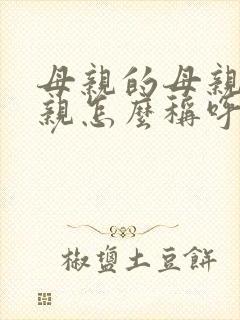 母親的母親
親怎麼稱呼
椒鹽土豆餅